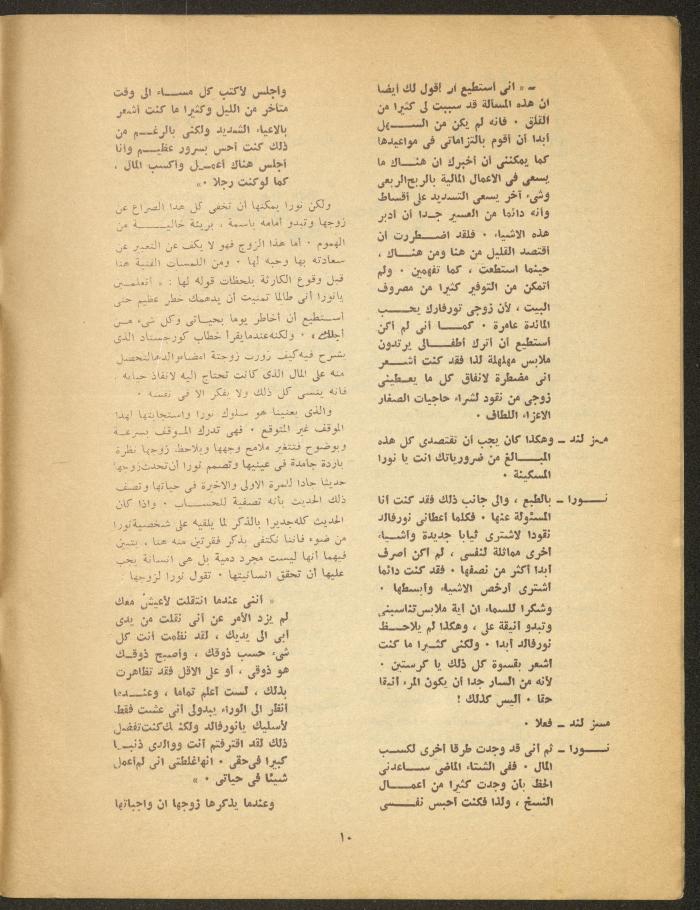 ـ « انى أستطيع أن أقول لك أيضا
ان هذه المسألة قد سببت لى كثيرا من
القلق ٠ فانه لم يكن من الســـهل
أبدا أن أقوم بالتزاماتى فى مواعيدها
كما يمكننى أن أخبرك ان هنـــاك ما
يسمى فى الاعمال المالية بالربح الربعى
وشىء آخر يسمى التسديد على أقساط
وأنه دائما من العسير جـدا ان أدبر
هذه الاشياء ٠ فلقد اضــطررت أن
أقتصد القليل من هنا ومن هنـــاك ،
حيثما استطعت ، كما تفهمين ٠ ولم
أتمكن من التوفير كثيرا من مصروف
البيت ، لأن زوجى تورفارك يحـــب
المائدة عامرة ٠ كمـــا أنى لم أكن
أستطيع أن أترك أطفـــالى يرتدون
ملابس مهلهلة لذا فقد كنت أشــعر
انى مضطرة لانفاق كل ما يعــطينى
زوجى من نقود لشراء حاجيات الصغار
الاعزاء اللطاف ٠
مسز لند ــ وهكذا كان يجب أن تقتصدى كل هذه
المبـــالغ من ضرورياتك انت يا نورا
المسكينة ٠
نـــورا ــ بالطبع ، والى جانب ذلك فقد كنت أنا
المسئولة عنها ٠ فكلما أعطانى نورفالد
نقودا لاشترى ثيابا جديدة وأشــياء
اخرى مماثلة لنفسى ، لم اكن أصرف
أبدا أكثر من نصفها ٠ فقد كنت دائما
أشترى أرخص الاشياء وأبسطها ٠
وشكرا للسماء ان أية ملابس تناسبنى
وتبدو أنيقة على ، وهكذا لم يلاحــظ
نورفالد أبدا ٠ ولكنى كثــيرا ما كنت
اشعر بقسوة كل ذلك يا كرستين ٠
لأنه من السار جدا أن يكون المرء أنيقا
حقا ٠ أليس كذلك !
مسز لند ــ فعلا ٠
نـــورا ــ ثم أنى قد وجدت طرقا أخرى لكسب
المال ٠ ففى الشتاء الماضى ســاعدنى
الحظ بأن وجدت كثيرا من أعمـــال
النسخ ، ولذا فكنت أحبس نفـــسى
وأجلس لأكتب كل مســـاء الى وقت
متأخر من الليل وكثيرا ما كنت أشعر
بالاعياء الشديد ولكنى بالرغــم من
ذلك كنت أحس بسرور عظيــم وأنا
أجلس هناك أعمــل وأكسب المال ،
كما لو كنت رجلا ٠»
ولكن نورا يمكنها أن تخفى كل هذا الصراع عن
زوجها وتبدو أمامه باسمة ، بريئة خاليـــة من
الهموم ٠ أما هذا الزوج فهو لا يكف عن التعبير عن
سعادته بها وحبه لها ٠ ومن اللمسات الفنية هنا
قبل وقوع الكارثة بلحظات قوله لها : « أتعلمــين
يانورا أنى طالما تمنيت أن يدهمك خطر عظيم حتى
أســتطيع أن أخاطر يوما بحيـاتى وكل شىء مــن
أجلك» ٠ ولكنه عندما يقرأ خطاب كورجستاد الذى
يشرح فيه كيف زورت زوجته امضاء والدها لتحصل
منه على المال الذى كانت تحتاج اليه لانقاذ حياته ،
فانه ينسى كل ذلك ولا يفكر الا فى نفسه ٠
والذى يعنينا هو سلوك نورا واستجابتها لهذا
الموقف غير المتوقع ٠ فهى تدرك المـوقف بسرعــة
وبوضوح فتتغير ملامح وجهها ويلاحظ زوجها نظرة
باردة جامدة فى عينيها وتصمم نورا أن تحدث زوجها
حديثا جادا للمرة الاولى والاخيرة فى حياتها وتصف
ذلك الحديث بأنه تصفية للحســاب ٠ واذا كان
الحديث كله جديرا بالذكر لما يلقيه على شخصية نورا
من ضوء فاننا نكتفى بذكر فقرتين منه هنا ، يتبين
فيهما أنها ليست مجرد دمية بل هى انسانة يجب
عليها أن تحقق انسانيتها ٠ تقول نورا لزوجها :
« أننى عندما انتقلت لأعيش معك
لم يزد الأمر عن أنى نقلت من يدى
أبى الى يديك ، لقد نظمت أنت كل
شىء حسب ذوقك ، وأصبح ذوقــك
هو ذوقى ، أو على الاقل فقد تظاهرت
بذلك ، لست أعلم تماما ، وعنــدما
أنظر الى الوراء يبدو لى أنى عشت فقط
لأسليك يانورفالد ولكنك كنت تفضل
ذلك لقد اقترفتم أنت ووالدى ذنبــا
كبيرا فى حقى ٠ انها غلطتى انى لم أعمل
شيئا فى حياتى ٠ »
وعندما يذكرها زوجها ان واجباتها
١٠